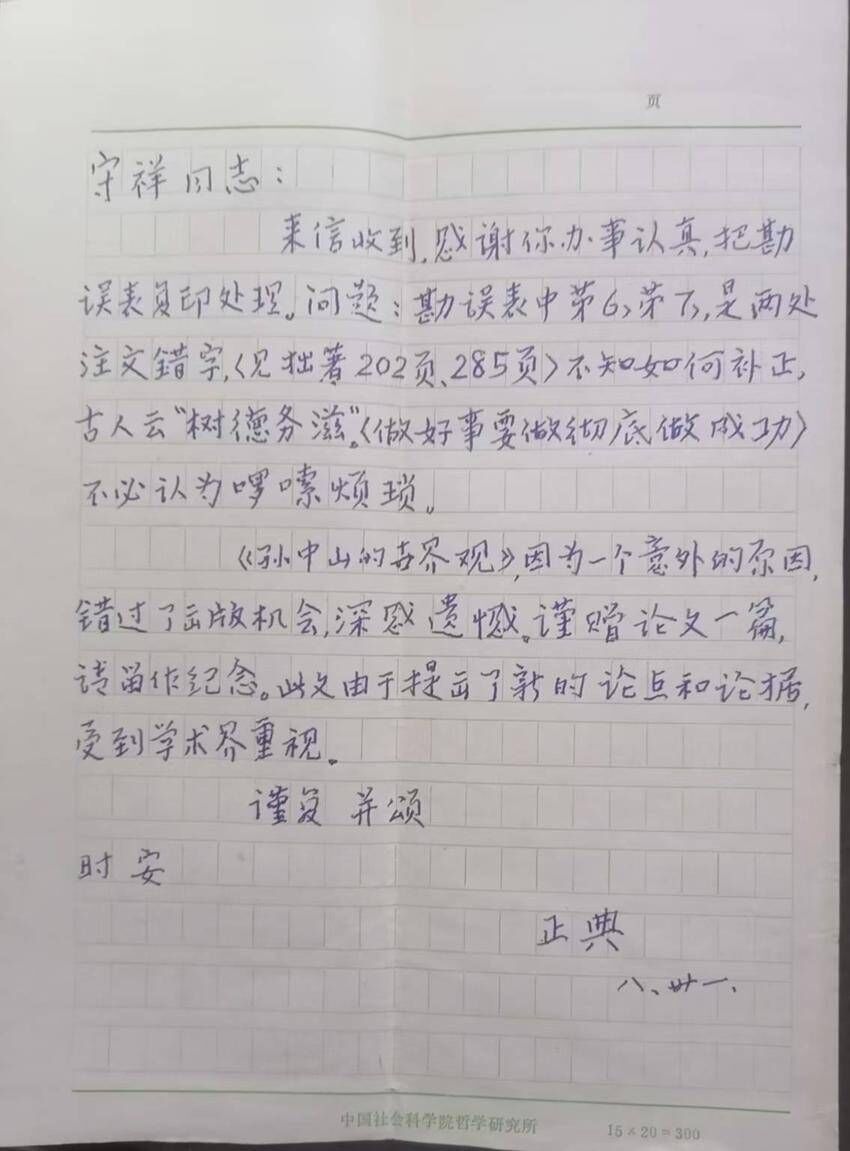 页
守祥同志：
来信收到，感谢你办事认真，把勘
误表复印处理。问题：勘误表中第6，第7，是两处
注文错字，〈见拙著202页、285页〉不知如何补正，
古人云“树德务滋”。〈做好事要做彻底做成功〉
不必认为啰嗦烦琐。
《孙中山的世界观》，因为一个意外的原因，
错过了出版机会，深感遗憾。谨赠论文一篇，
请留作纪念。此文由于提出了新的论点和论据，
受到学术界重视。
谨复 并颂
时安
正典
八、卅一、
中国社会科学院哲学研究所
15×20=300